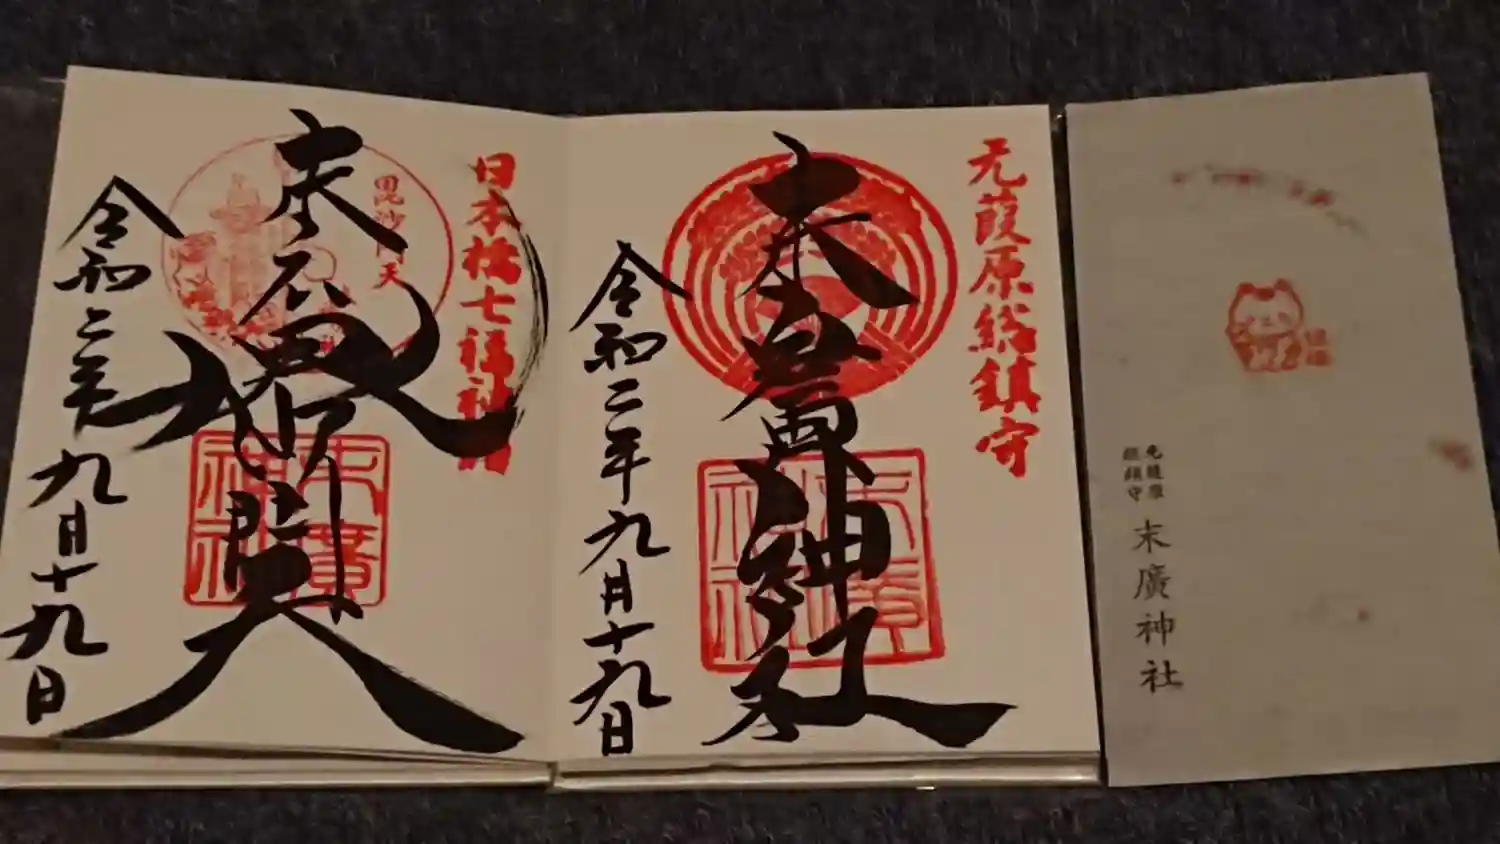 元葭原
総鎮守
末廣神社
元葭原総鎮守
末廣神社
末廣
神社
令和二年九月十九日
日本橋七福神詣
毘沙門天
末廣毘沙門天
末廣
神社
令和二年九月十九日